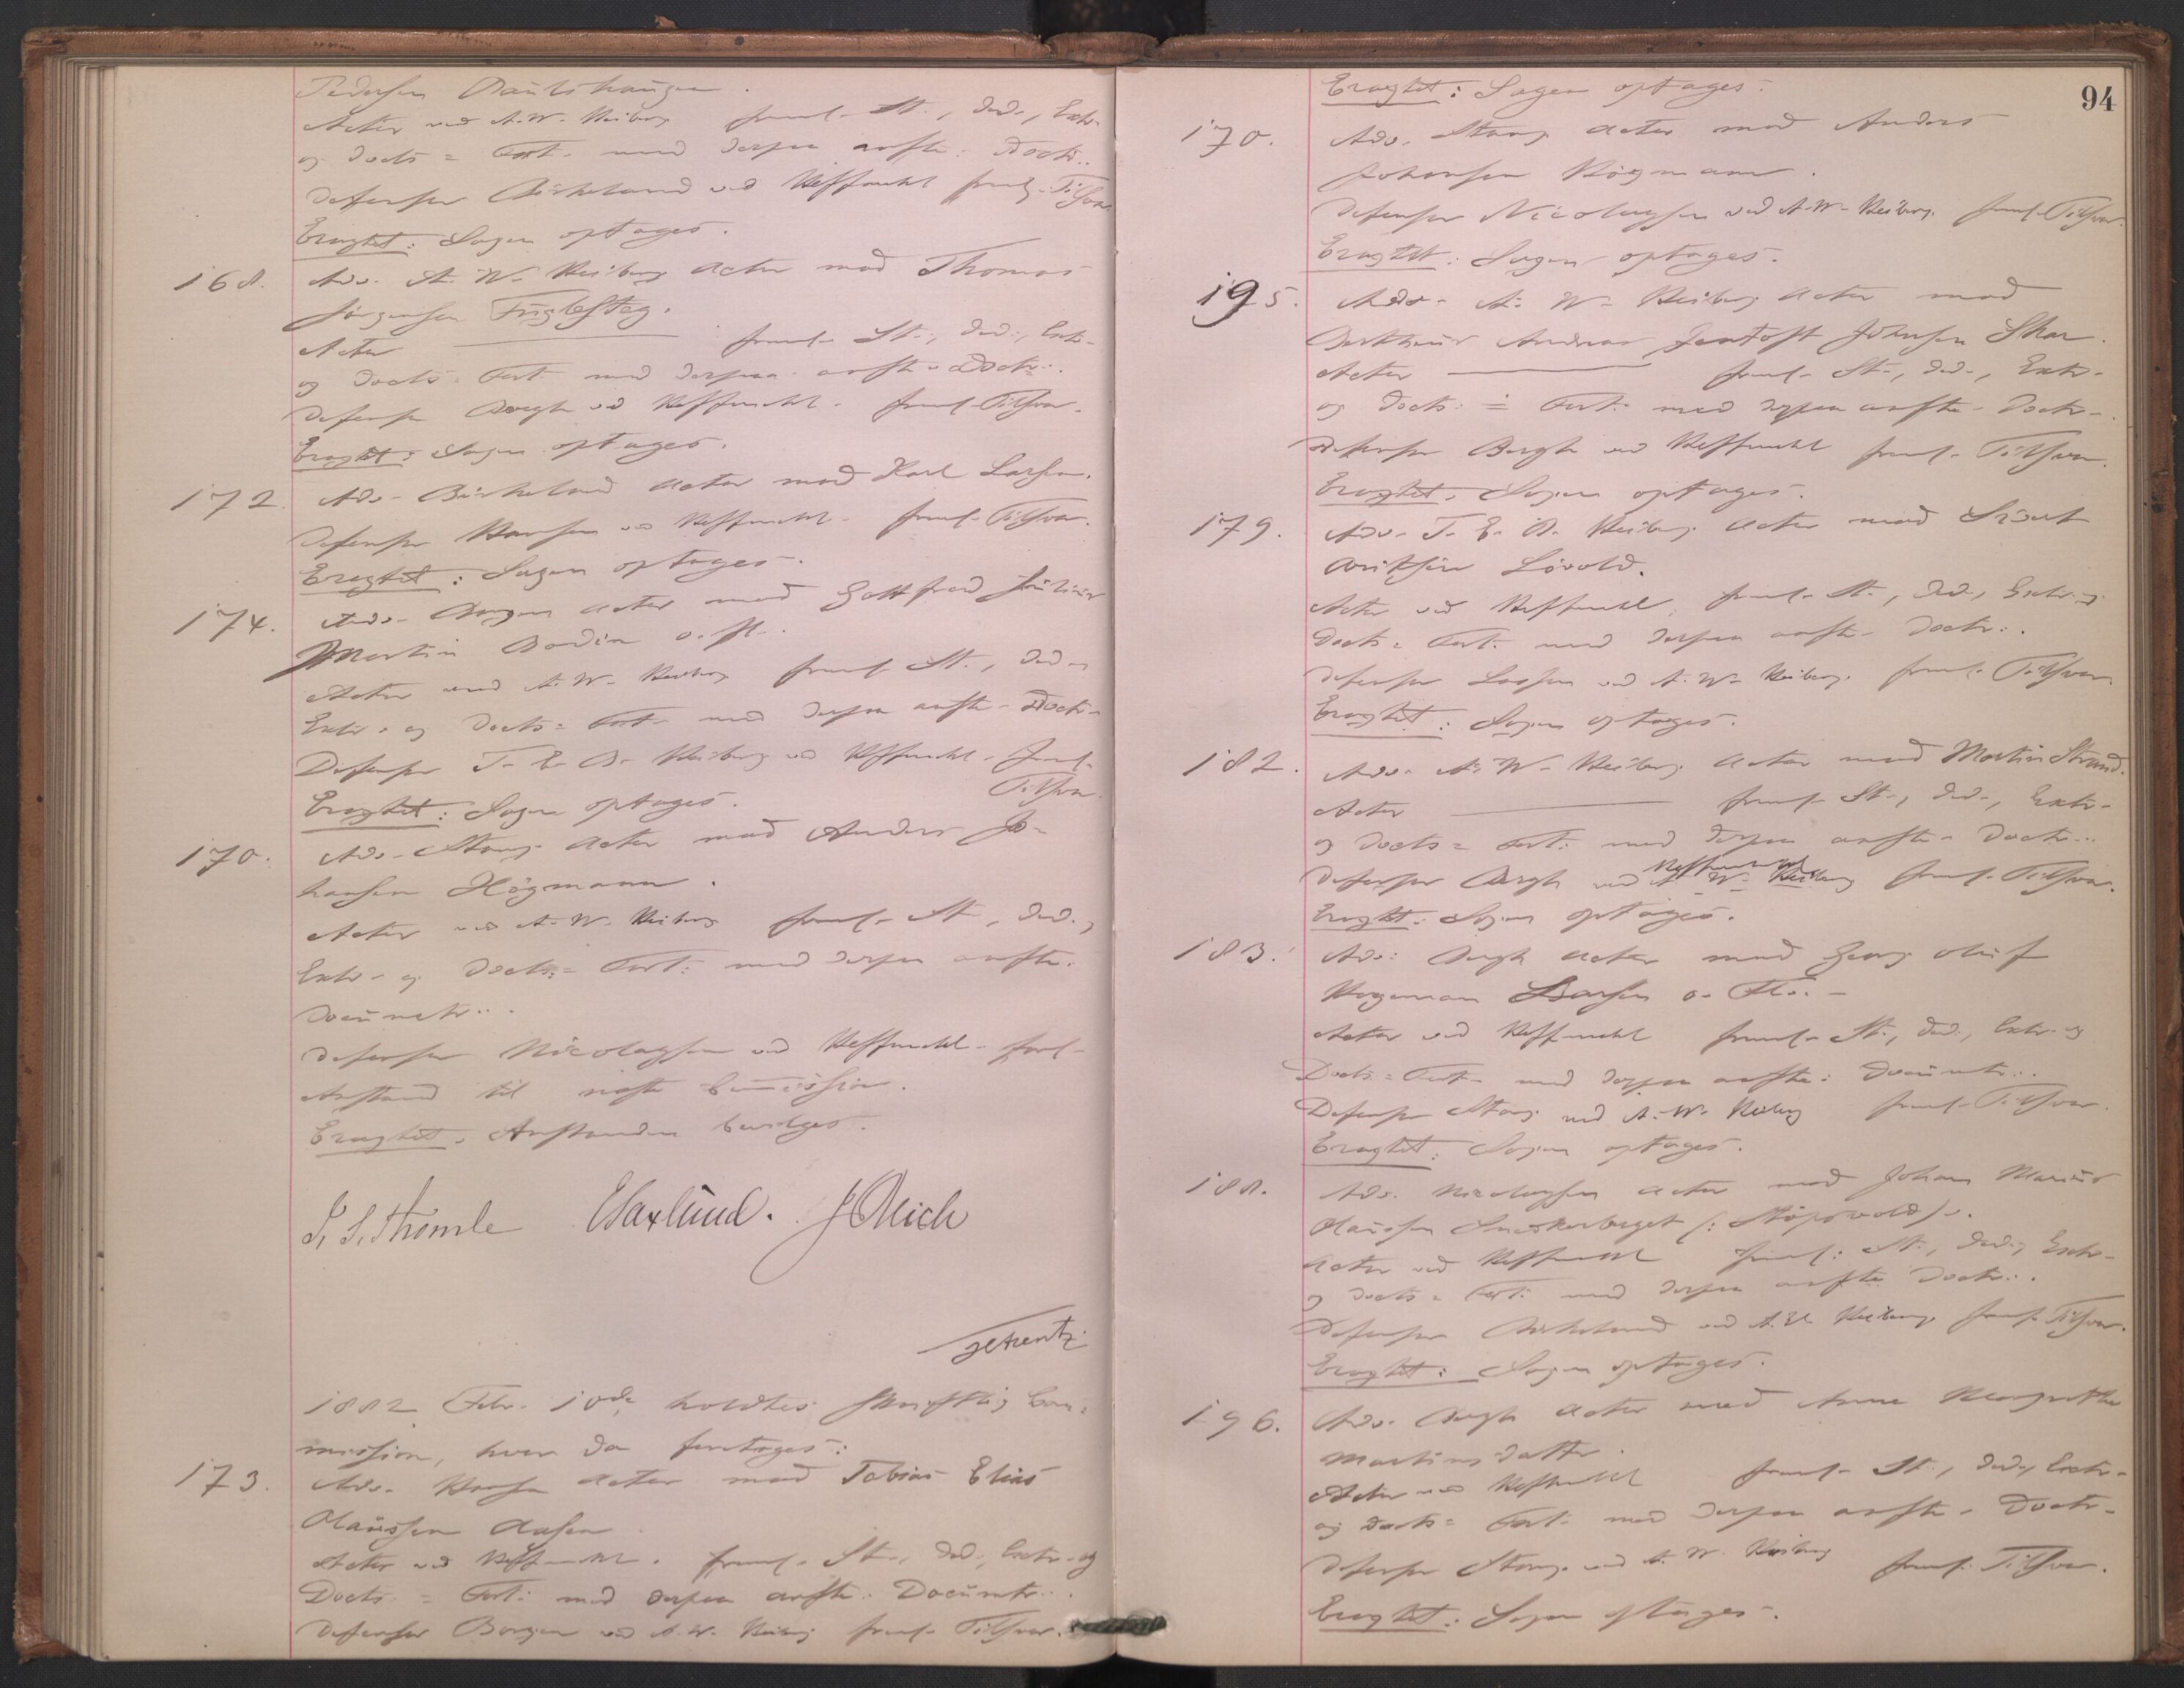 Pedersen
Actor ved A. W. Heiberg freml. St., Ded., Extr.
og Docts = Cert. med derpaa anførte Doctr..
Defensor Birkeland ved Heffmehl freml. Tilsvar.
Eragtet: Sagen optages.
168. Adv. A. W. Heiberg Actor mod Thomas
Jørgensen Fuglestag.
Actor — freml. St., Ded., Extr.
og Docts. Cert. med derpaa anførte Doctr..
Defensor Bergh ved Heffmehl freml. Tilsvar.
Eragtet: Sagen optages.
172. Adv. Birkeland Actor mod Karl Larsen.
Defensor Hansen ved Heffmehl. freml. Tilsvar.
Eragtet: Sagen optages.
174. Adv. Borgen Actor mod Gottfred Julius
Martin Bodin o. fl.
Actor ved A. W. Heiberg freml. St., Ded.,
Extr. og Docts = Cert. med derpaa anførte Doctr.
Defensor T. E. B. Heiberg ved Heffmehl freml.
Tilsvar.
Eragtet: Sagen optages.
170. Adv. Stang Actor mod Anders Jo-
hansen Högmann.
Actor ved A. W. Heiberg freml. St., Ded.,
Extr. og Docts = Cert. med derpaa anførte
Documtr..
Defensor Nicolaysen ved Heffmehl forl.
Anstand til næste Commission.
Eragtet: Anstanden bevilges.
Thomle E Saxlund. J Mich

1882 Febr. 10de holdtes skriftlig Com-
mission, hvor da foretoges:
173. Adv. Hansen Actor mod Tobias Elias
Olaussen Aasen
Actor ved Heffmehl. freml. St., Ded., Extr. og
Docts = Cert. med derpaa anførte Documtr..
Defensor Borgen ved A. W. Heiberg freml. Tilsvar.
94
Eragtet: Sagen optages.
170. Adv. Stang Actor mod Anders
Johansen Högmann.
Defensor Nicolaysen ved A. W. Heiberg freml. Tilsvar.
Eragtet: Sagen optages.
195. Adv. A. W. Heiberg Actor mod
Andreas Jentoft Johnsen
Actor — freml. St., Ded., Extr.
og Docts. = Cert. med derpaa anførte Doctr.
Defensor Bergh ved Heffmehl freml. Tilsvar.
Eragtet: Sagen optages.
179. Adv. T. E. B. Heiberg Actor mod Sivert
Løvold.
Actor ved Heffmehl freml. St., Ded., Extr. og
Docts = Cert. med derpaa anførte Doctr..
Defensor Lassen ved A. W. Heiberg. freml. Tilsvar.
Eragtet: Sagen optages.
182. Adv. A. W. Heiberg Actor mod Martin Strand.
Actor — freml. St., Ded., Extr.
og Docts = Cert. med derpaa anførte Doctr..
Heffmehl
Defensor Bergh ved A. W. Heiberg freml. Tilsvar.
Eragtet: Sagen optages.
183. Adv. Bergh Actor mod Georg Oluf
Larsen o. Fl.
Actor ved Heffmehl freml. St., Ded., Extr. og
Docts = Cert. med derpaa anførte Documtr..
Defensor Stang ved A. W. Heiberg freml. Tilsvar.
Eragtet: Sagen optages.
188. Adv. Nicolaysen Actor mod Johan Marius
Olaussen
Actor ved Heffmehl freml. St., Ded., Extr.
og Docts = Cert. med derpaa anførte Doctr..
Defensor Birkeland ved A. W. Heiberg freml. Tilsvar.
Eragtet: Sagen optages.
196. Adv. Bergh Actor mod Anne Margrethe
Martinsdatter.
Actor ved Heffmehl freml. St., Ded., Extr.
og Docts = Cert. med derpaa anførte Doctr.
Defensor Stang ved A. W. Heiberg freml. Tilsvar.
Eragtet: Sagen optages.